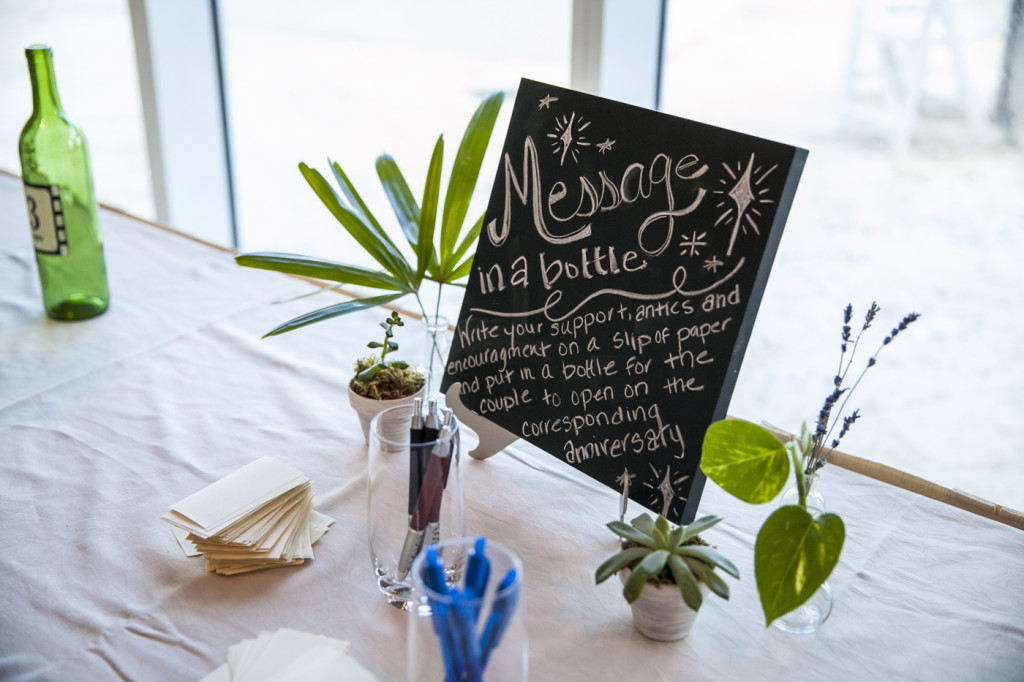 3
Message
in a bottle
Write your support, antics and
encouragment on a slip of paper
and put in a bottle for the
couple to open on the
corresponding
anniversary